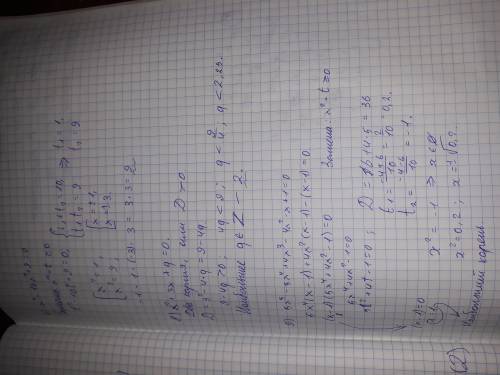 x² = 1,
x² = 9,
x = ±1,
x = ±3.
-1 · 1 · (-3) · 3 = 3 · 3 = 9
8) x² + 3x + q = 0.
Два корня, если D > 0
D = 3² - 4 · q = 9 - 4q
9 - 4q > 0, 4q < 9; q < 9/4; q < 2,25.
Наибольшее q ∈ Z - 2.
9) 5x⁵ - 5x⁴ + 4x³ - 4x² - x + 1 = 0
5x⁴(x-1) + 4x²(x-1) - (x-1) = 0.
(x-1)(5x⁴ + 4x² - 1) = 0
5x⁴ + 4x² - 1 = 0 Замена: x² = t ≥ 0
5t² + 4t - 1 = 0; D = 16 + 4 · 5 = 36
t₁ = (-4+6)/10 = 2/10 = 0,2.
t₂ = (-4-6)/10 = -1.
x² = -1 ⇒ x ∈ ∅
x² = 0,2; x = ±√0,2
(x-1) = 0
Наибольший корень
(2)